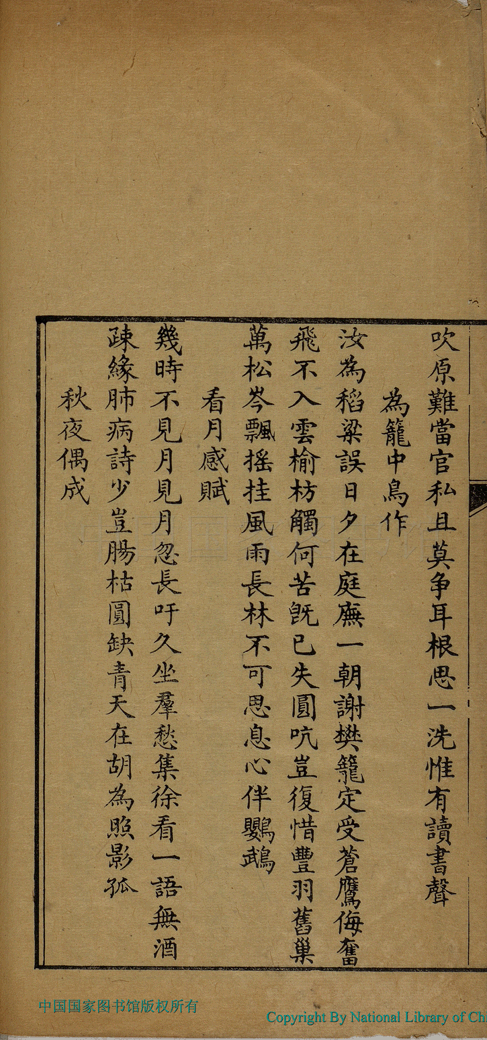 吹原難當官私且莫争耳根思一洗惟有讀書聲
為籠中鳥作
汝為稻粱誤日夕在庭廡一朝謝樊籠定受蒼鷹侮奮
飛不入雲榆枋觸何苦既已失圓吭豈復惜豐羽舊巢
萬松岑飄摇挂風雨長林不可思息心伴鸚鵡
看月感賦
幾時不見月見月忽長吁久坐羣愁集徐看一語無酒
疎緣肺病詩少豈腸枯圓缺青天在胡為照影孤
秋夜偶成
中国国家图书馆版权所有
Copyright By National Library of Ch